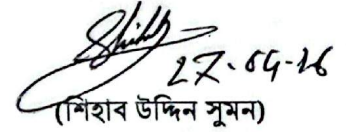 27-04-16
(শিহাব উদ্দিন সুমন)